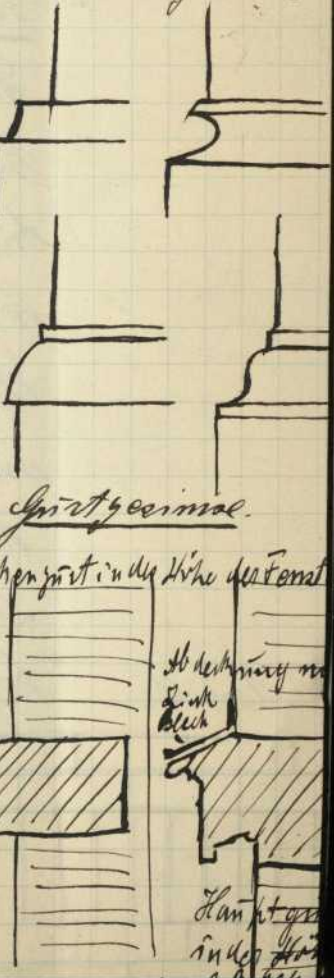 Gurtgesimse.
hengurt in der Höhe des Fenst
Abdeckung m
Zink
blech
Hauptgu
in der Höh